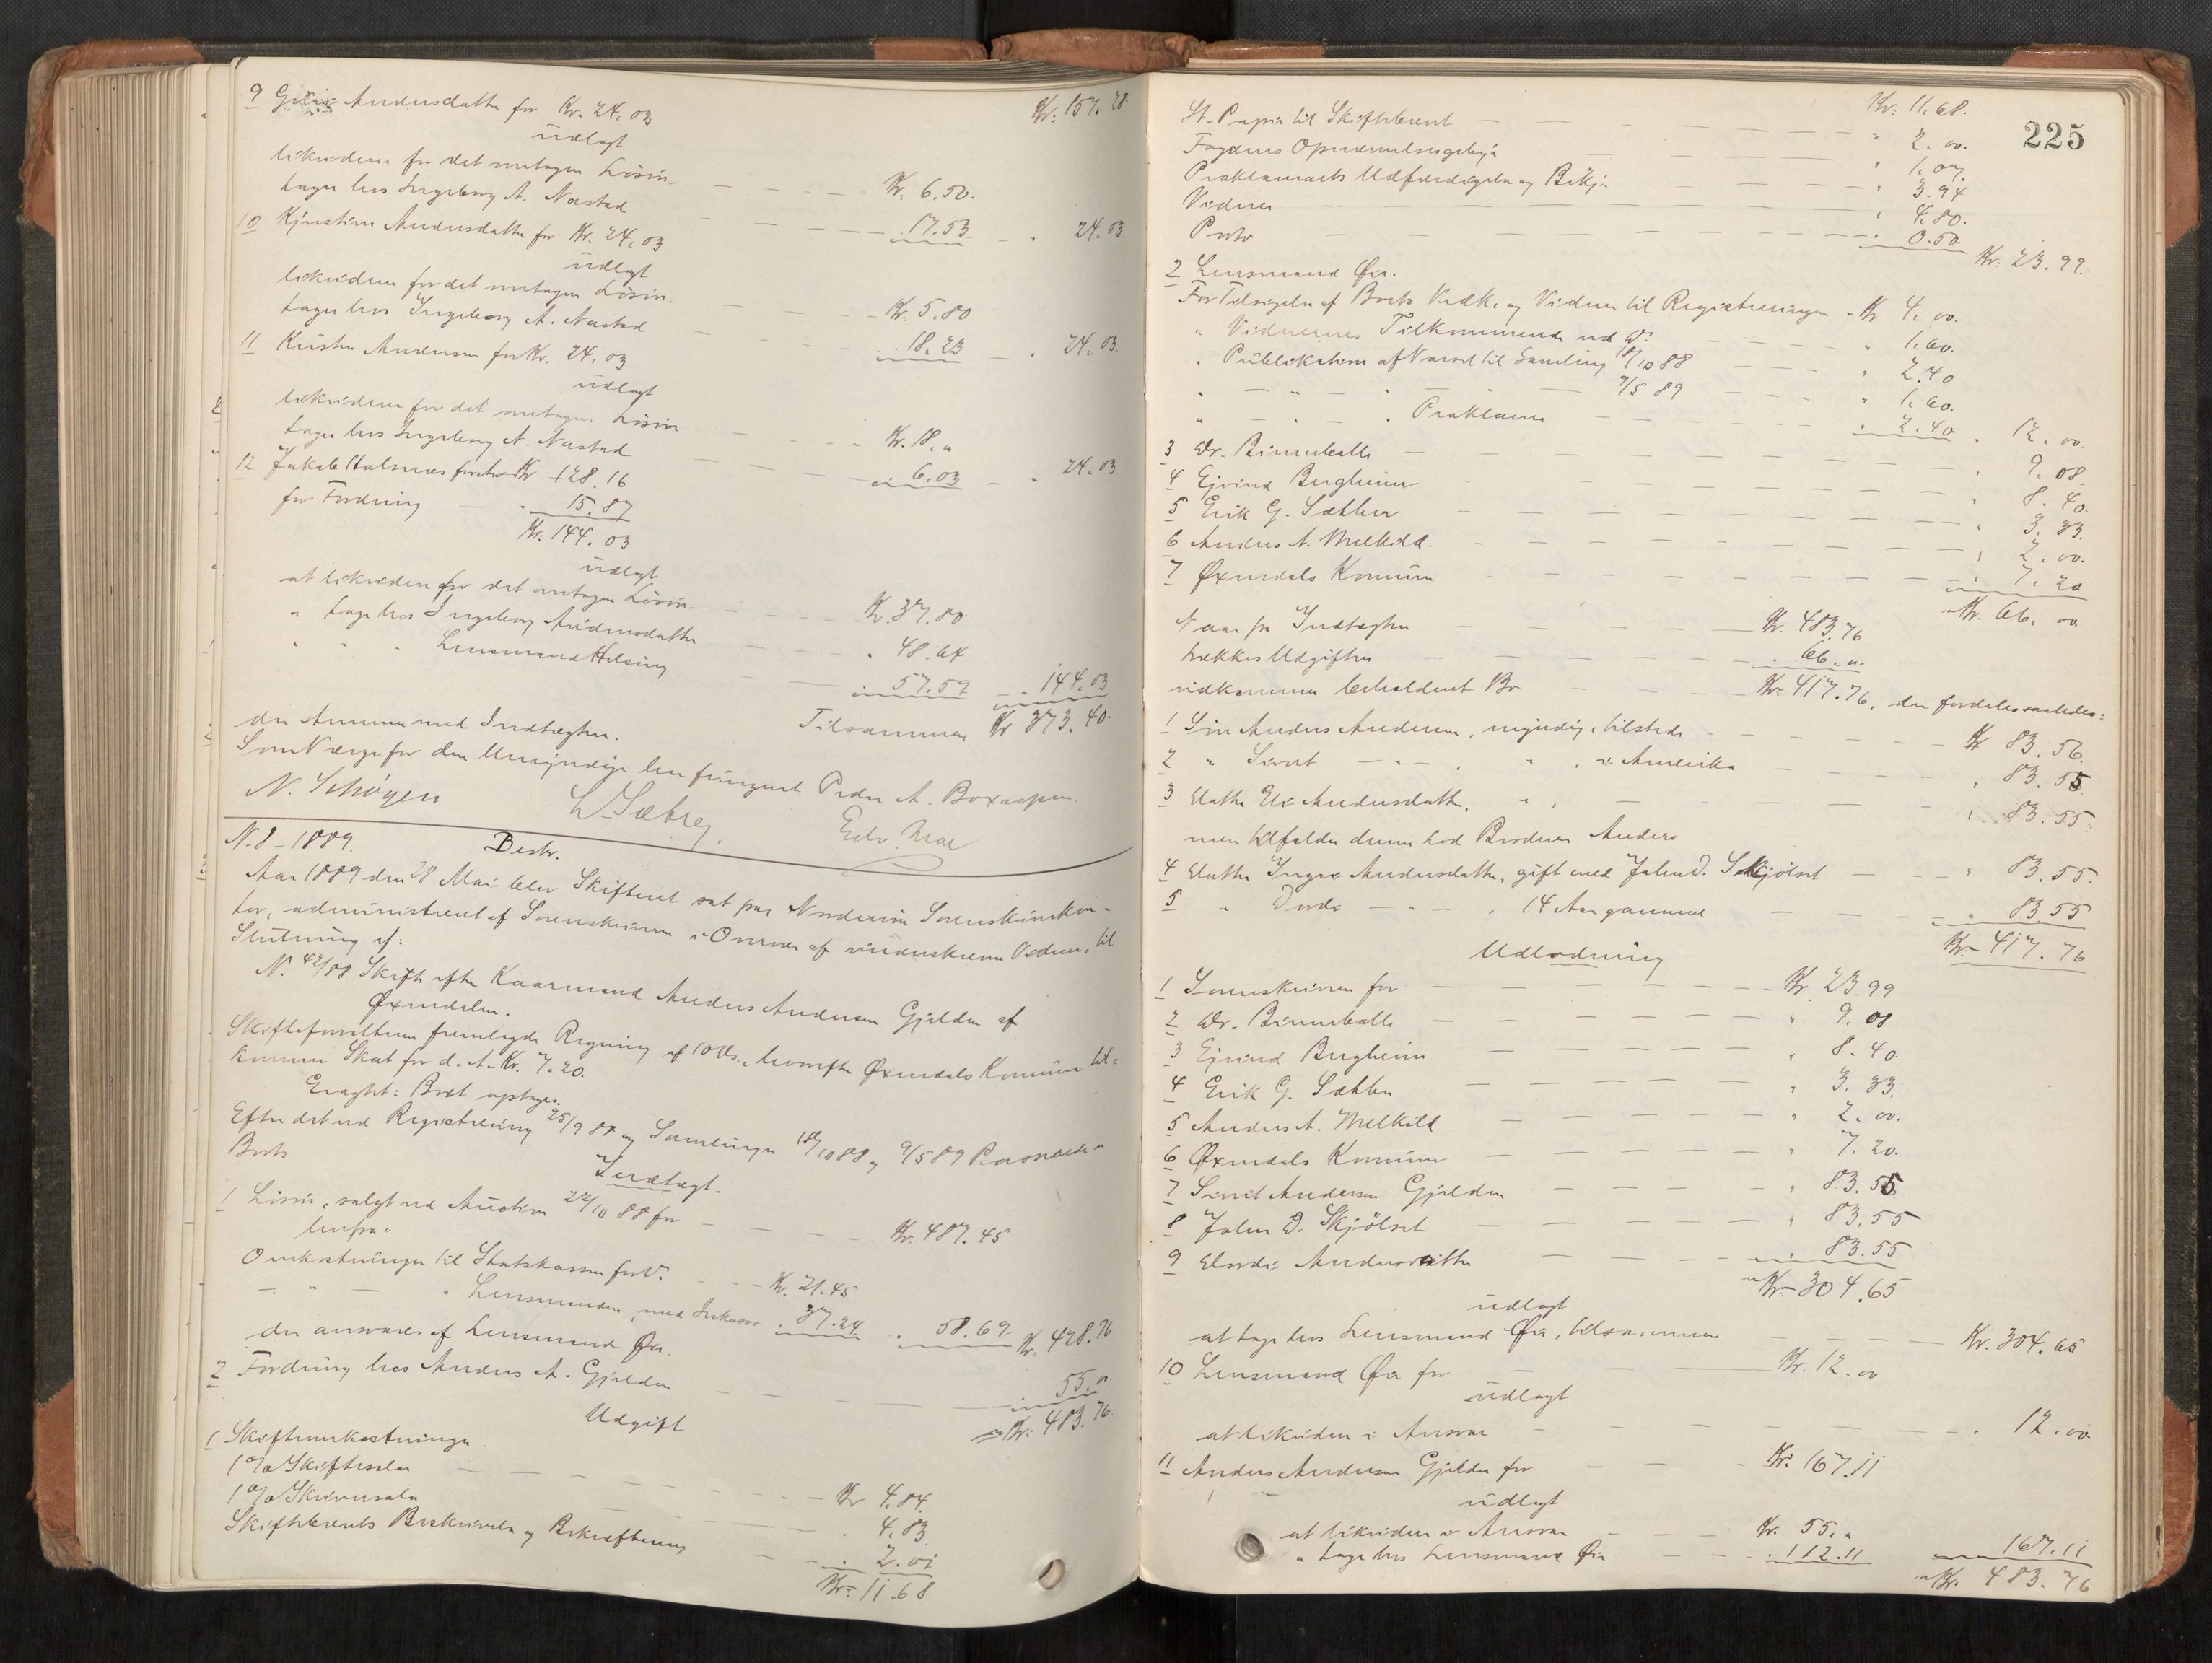 9 Andersdatter for Kr. 24,03 Kr. 157.28.
udlagt
likvideres for det modtagne Lösöre Kr. 6.50.
tages hos Ingeborg A. Nastad 17.53 24.03.
10 Kjerstine Andersdatter for Kr. 24,03
udlagt
likvideres for det modtagne Lösöre Kr. 5.80
tages hos Ingeborg A. Nastad 18.23 24.03.
11 Kristen Andersen for Kr. 24.03
udlagt
likvideres for det modtagne Lösöre Kr. 18."
tages hos Ingeborg A. Nastad 6.03 24.03
12 Jakob Halsnæs Kr. 128.16
for Fordring 15.87
Kr. 144.03
udlagt
at likvidere for det modtagne Lösöre Kr. 37.80
" tage hos Ingeborg Andersdatter " 48.64
" " " Lensmand Helsing " 57.59 " 144.03
Tilsammen Kr 373.40.
der stemmer med Indtægten.
Som Værge for den Umyndige har fungeret Peder A. Boxaspen.
N. Schögen L. Sæbrey. Edv. Moe
N. 8 - 1889. Beskr.
Aar 1889 den 28 Mai blev Skifteret sat paa Nordmøre Sorenskriverkon-
tor, administreret af Sorenskriveren i Overvær af undertskrevne Vidner, til
Slutning af:
N. 42/88 Skifte efter Kaarmand Anders Andersen Gjelden af
Øxendalen.
Skifteforvalteren fremlagde Regning af 10 ds., hvorefter Øxendals Komune til-
kommer Skat for d. A. Kr. 7.20.
Eragtet: Boet optages.
Efter det ved Registrering 25/9 88 og Samlinger 18/10 88 og 9/5 89 Passerede er
Boets
Indtægt.
1 Lösöre, solgt ved Auktion 22/10 88 for Kr. 487.45
herfra:
Omkostninger til Statskassen Kr. 21.45
— " — " Lensmanden, med Inkasso " 37.24 " 58.69 Kr. 428.76
der ansvares af Lensmand Øie.
2 Fordring hos Anders A. Gjelden 55."
Kr. 483.76.
Udgift
1 Skifteomkostninger.
1% Skiftesalær Kr 4.84.
1% Skriversalær " 4.83
Skiftebrevets Beskrivelse og Bekræftelse " 2.01
Kr. 11.68
225
St. Papir til Skiftebrevet Kr. 11.68.
" 2.00.
Fogdens Opnævnelsesgebyr " 1.07.
Proklamaets Udfærdigelse og Bekj. " 3.94
Vidner " 4.80.
Porto " 0.50 Kr. 23.99.
2 Lensmand Øie.
For Tilsigelse af Boets Vedk. og Vidner til Registreringen Kr 4.00.
" Vidnernes Tilkommende ved Do. " 1.60.
" Publikation af Varsel til Samling 18/10 88 " 2.40
" — " — " — 9/5 89 " 1.60.
" — " — " Proklama " 2.40 " 12.00.
3 Dr. Binneballe " 9.08.
4 Ejvind Bergheim " 8.40.
5 Erik G. Sæther " 3.33.
6 Anders A. Melkild. " 2.00.
7 Øxendals Komune " 7.20
Kr. 66.00
Naar fra Indtægten Kr. 483.76
trækkes Udgiften " 66."
udkommer beholdent Bo Kr. 417.76, der fordeles saaledes:
1 Sön Anders Andersen, myndig, tilstede Kr 83.56.
2 " Sivert — " — , " , i Amerika " 83.55
3 Datter Eli Andersdatter, " , " 83.55.
men tilfalder denne Lod Broderen Anders
4 Datter Inger Andersdatter, gift med John D. Skjölset " 83.55.
5 " Dordi — " — , 14 Aar gammel " 83.55
Kr. 417.76
Udlodning
1 Sorenskriveren for Kr 23.99
2 Dr. Binneballe " 9.08
3 Ejvind Bergheim " 8.40.
4 Erik G. Sæther " 3.33.
5 Anders A. Melkild " 2.00.
6 Øxendals Komune " 7.20.
7 Sivert Andersen Gjelden " 83.55
8 John D. Skjölset " 83.55
9 Dordi Andersdatter " 83.55
Kr. 304.65
udlagt
at tage hos Lensmand Øie, tilsammen Kr. 304.65
10 Lensmand Øie for Kr. 12.00
udlagt
at likvidere i Ansvar " 12.00.
11 Anders Andersen Gjelden for Kr. 167.11
udlagt
at likvidere i Ansvar Kr. 55."
" tage hos Lensmand Øie " 112.11 167.11
Kr. 483.76